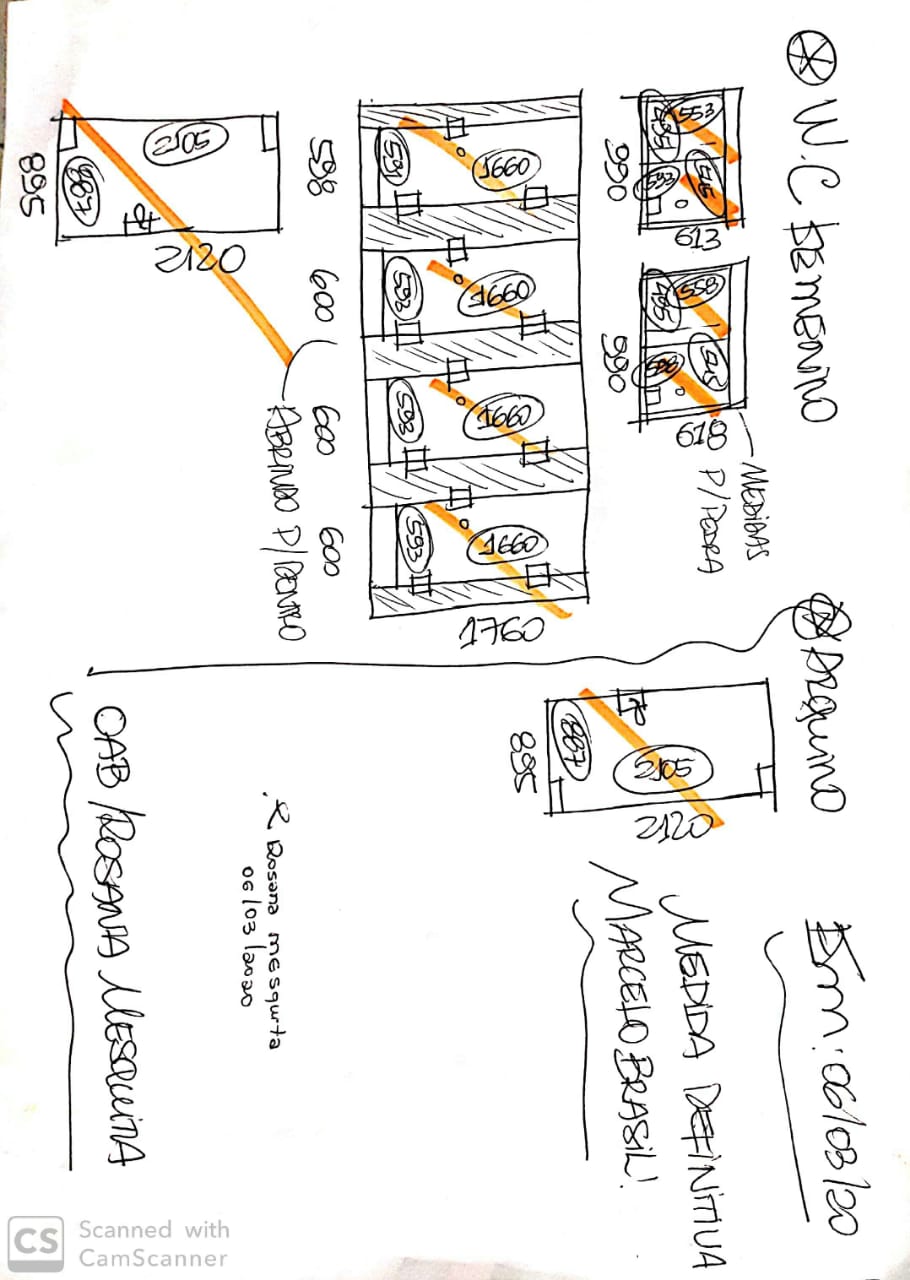 W.C FEMENINO
553
515
990
613
558
618
990
MEDIDAS
P/PEDRA
1660
591
598
1660
593
600
1660
593
600
1660
593
600
1760
2105
887
895
2120
ABRINDO P/DENTRO
ARQUIVO
887
2105
895
2120
Em: 06/03/20
MEDIDA DEFINITIVA
MARCELO BRASIL!
R Rosana mesquita
06/03/2020
OAB/ROSANA MESQUITA
CS Scanned with
CamScanner